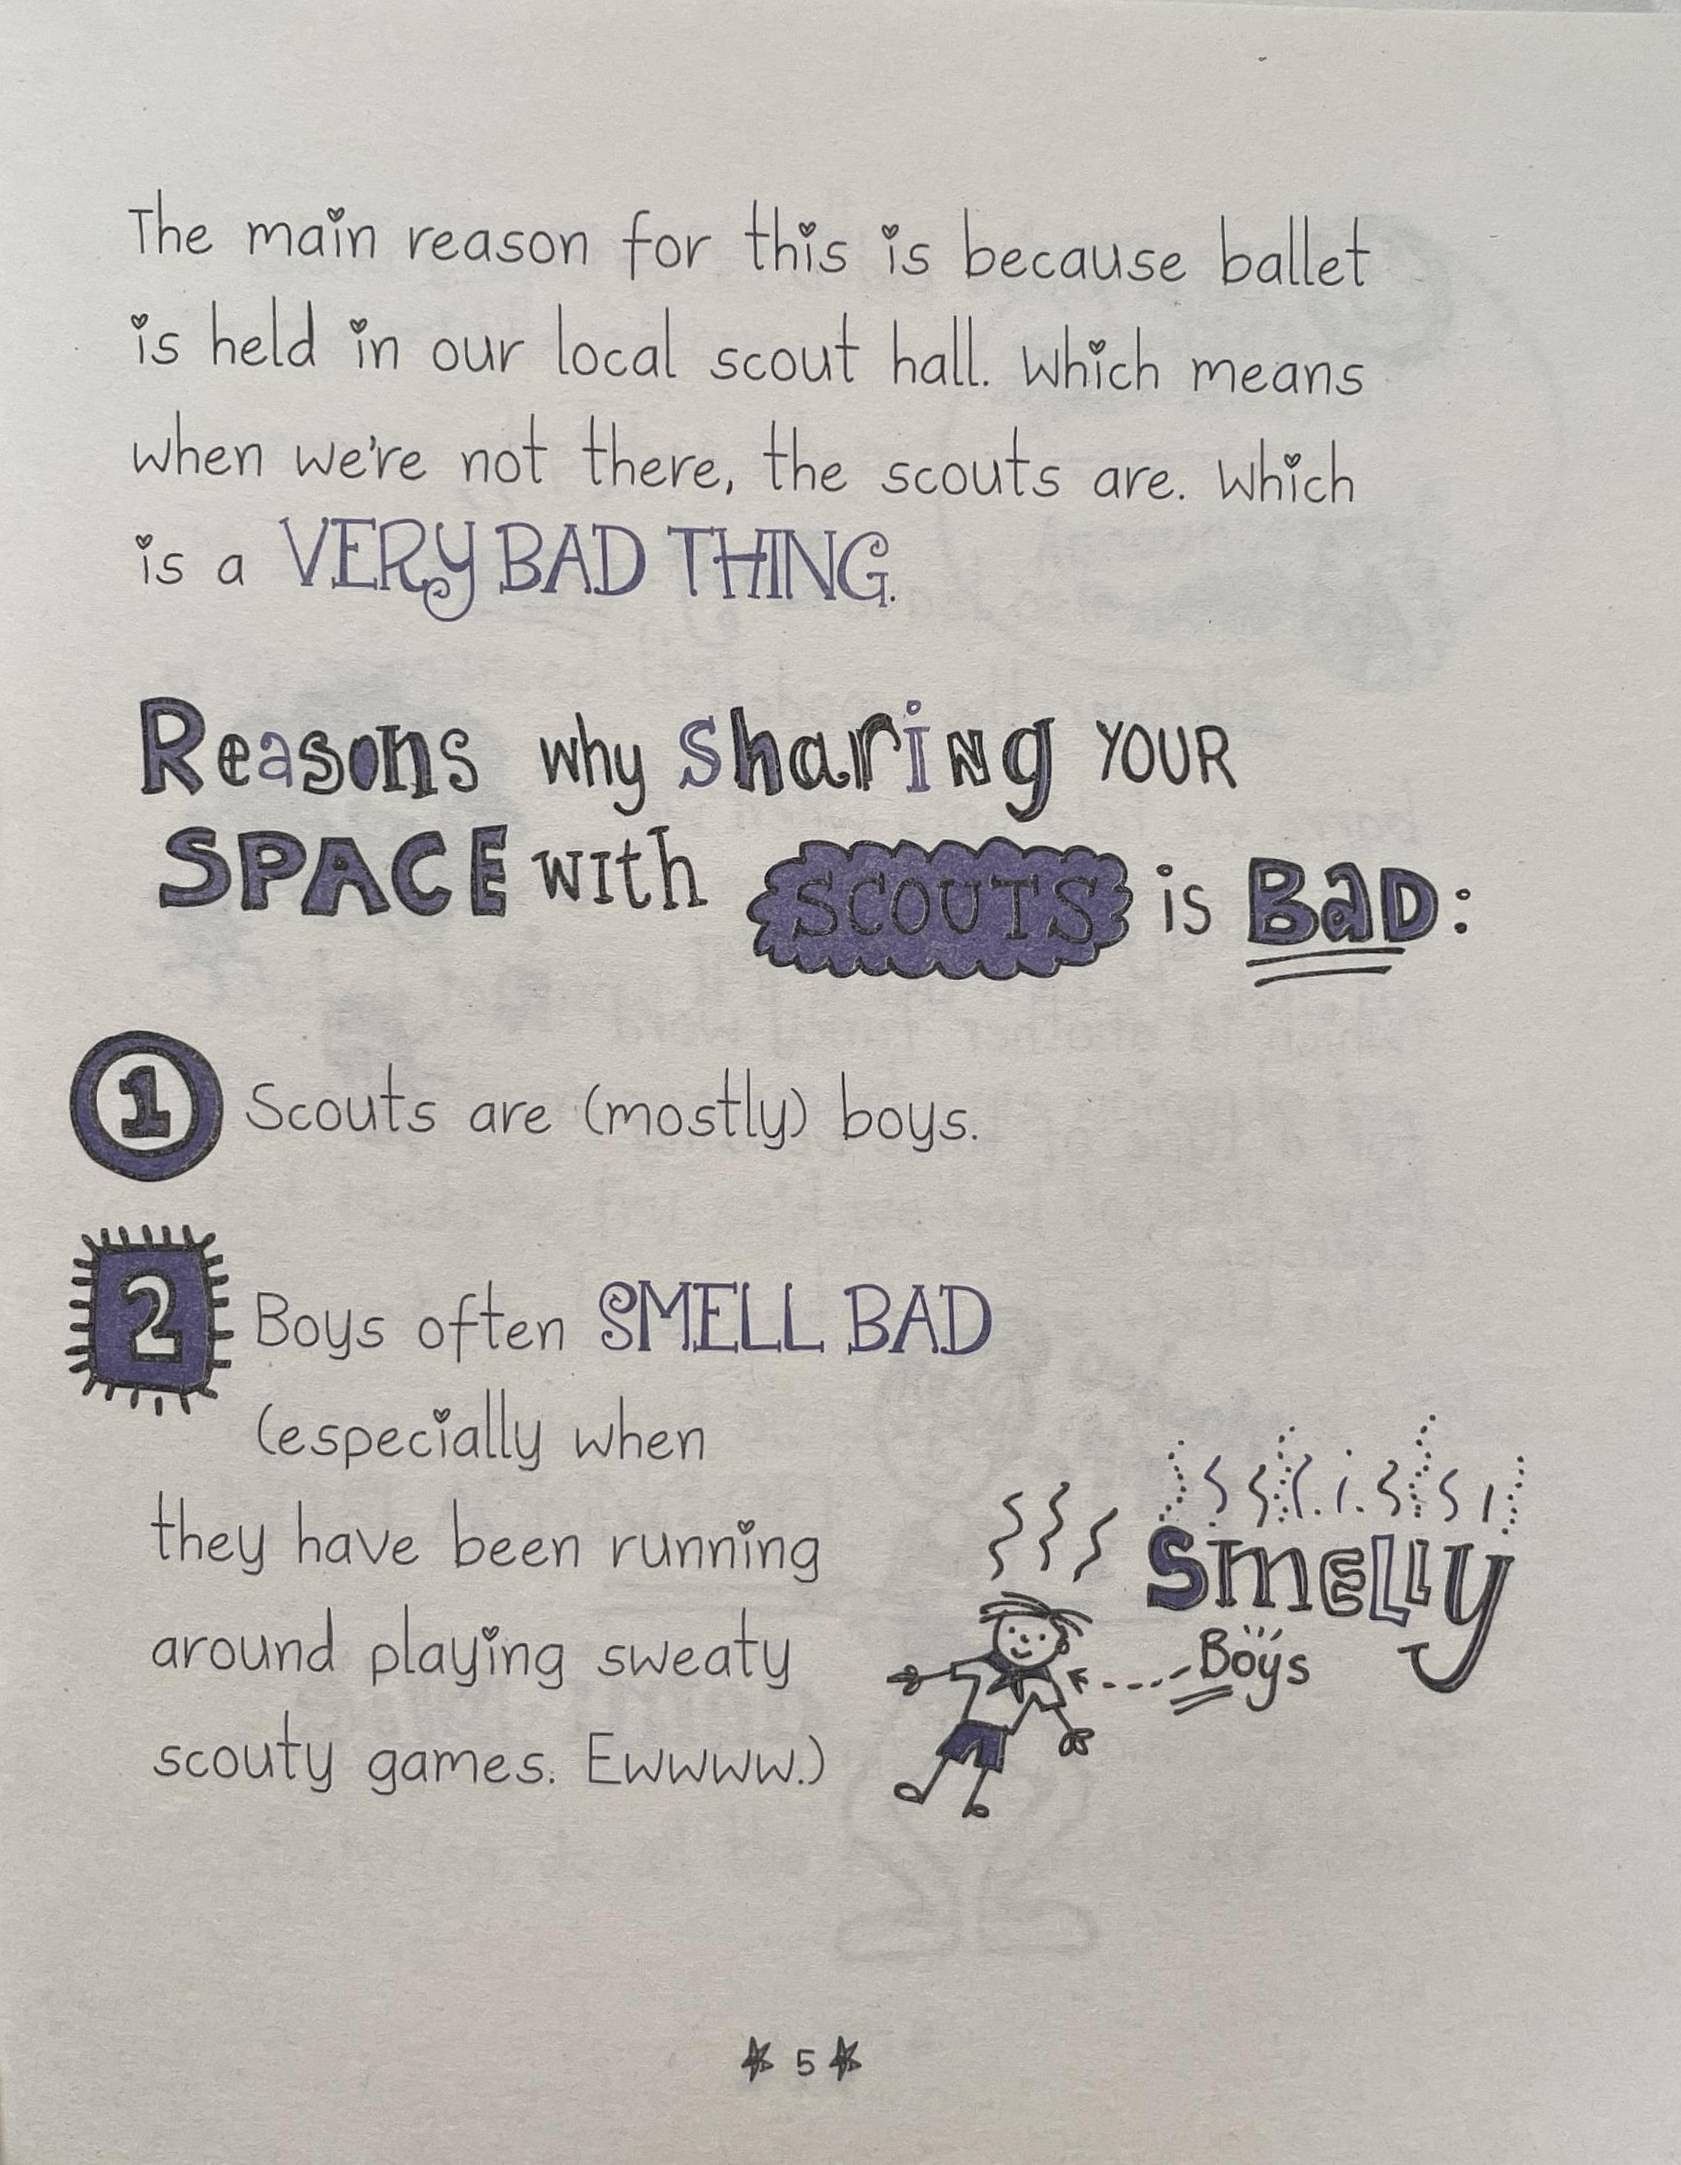 The main reason for this is because ballet
is held in our local scout hall. Which means
when we're not there, the scouts are. Which
is a VERY BAD THING.
Reasons why sharing YOUR
SPACE with SCOUTS is BaD:
1 Scouts are (mostly) boys.
2 Boys often SMELL BAD
(especially when
they have been running
around playing sweaty
scouty games. Ewwww.)
SmELLy
Boys
5